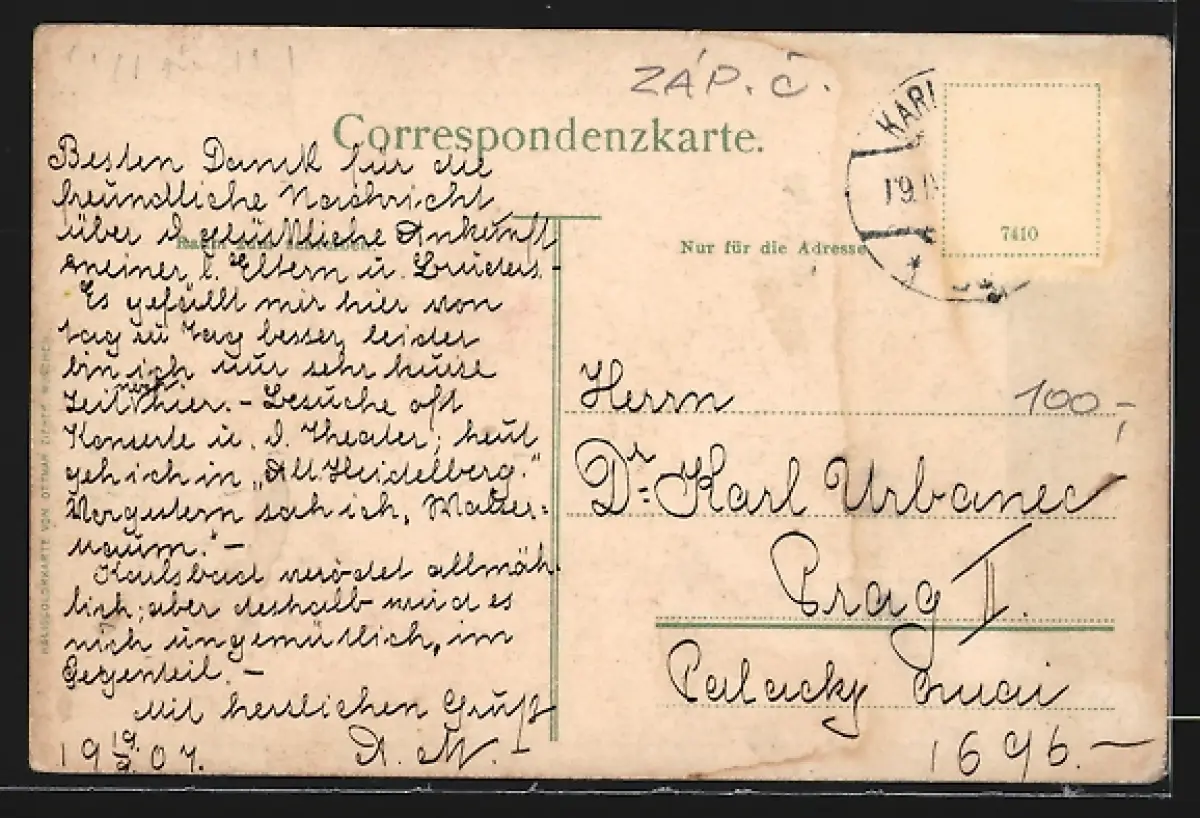 ZÁP. Č.
Correspondenzkarte.
KARL
19.IX
7410
Nur für die Adresse
Besten Dank für die
freundliche Nachricht
über d. glückliche Ankunft
meiner l. Eltern u. Bruders. -
Es gefällt mir hier von
tag zu Tag besser, leider
bin ich nur sehr kurze
Zeit noch hier. - Besuche oft
Konzerte u. d. Theater; heut
geh ich in „Alt Heidelberg."
Vorgestern sah ich „Walzer-
traum." -
Karlsbad verödet allmäh-
lich; aber deshalb wird es
nich ungemütlich, im
Gegenteil. -
Mit herzlichen Gruß
A. M. -
19 19./9. 07.
Herrn
100,-
Dr. Karl Urbanec
Prag II.
Palacky Quai
1696. -
OTTMAR ZIEHER